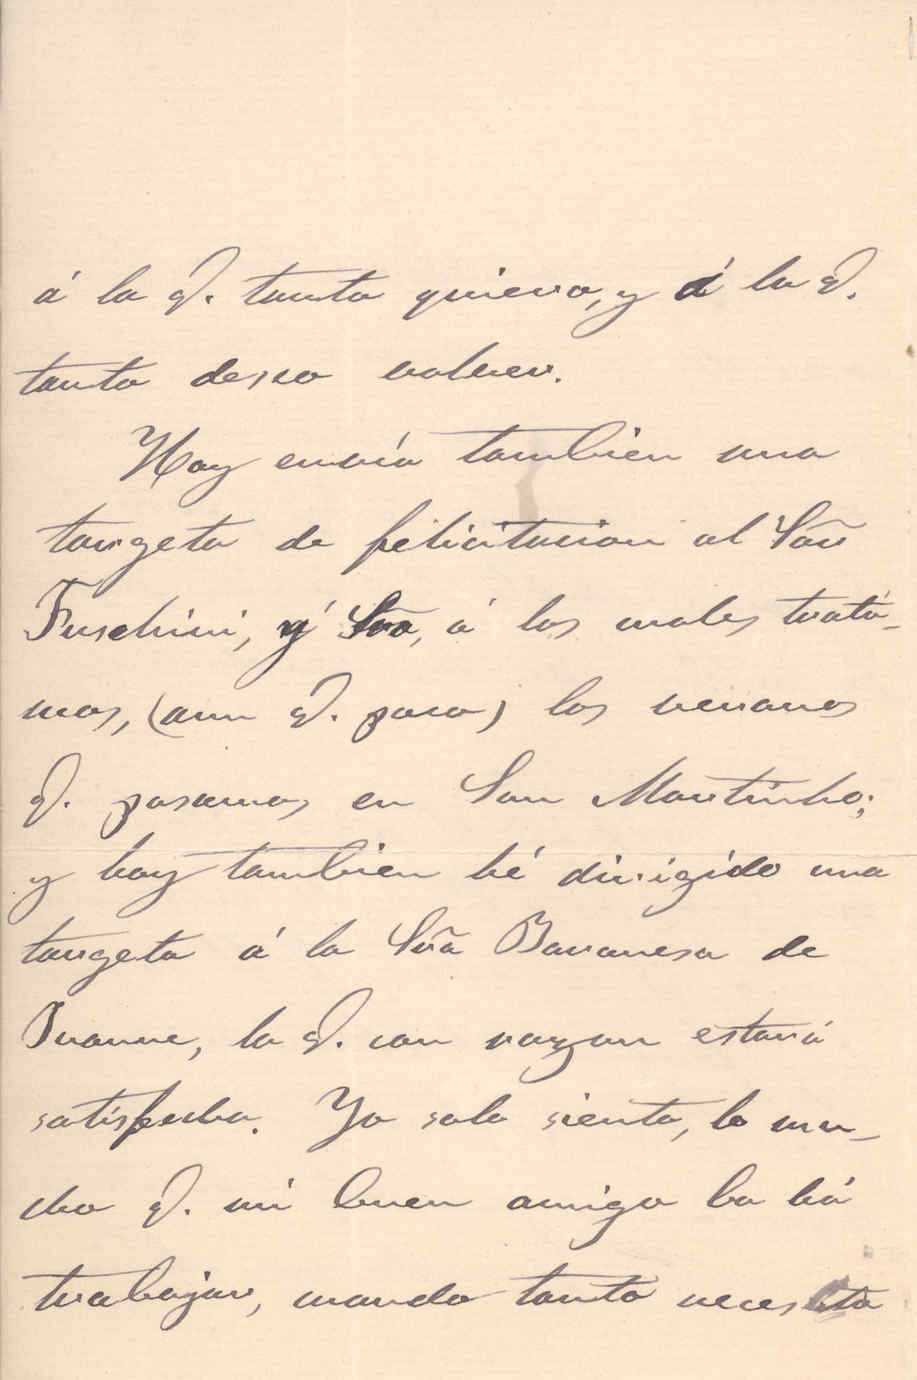 á la q. tanto quiero, y á la q.
tanto deseo volver.
Hoy envío tambien una
targeta de felicitacion al Sõr
Fuschini, y Srã, á los cuales tratá-
mos, (aun q. poco) los veranos
q. pasamos en San Martinho;
y hoy tambien hé dirigido una
targeta á la Srã Baronesa de
la q. con razon estará
satisfecha. Yo solo siento, lo mu-
cho q. mi buen amigo ha
trabajar, cuando tanto necesita